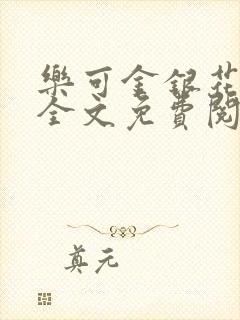 樂可金銀花
全文免費閱
真元